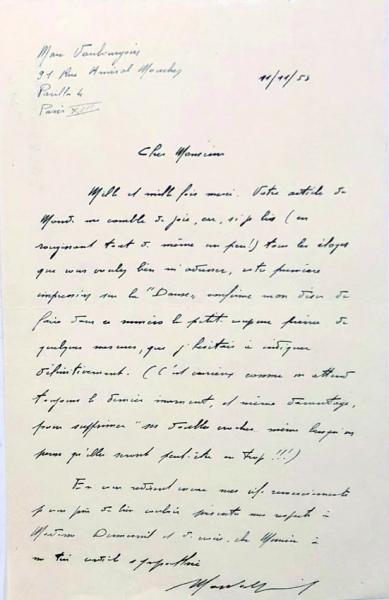 Marc Vaubourgoin
91 Rue Amiral Mouchez
Pavillon 4
Paris XIII
11/11/53
Cher Monsieur
Mille et mille fois merci. Votre article du
Monde me comble de joie, car, si je lis (en
rougissant tout de même un peu!) tous les éloges
que vous voulez bien m'adresser, votre première
impression sur la "Danse" confirme mon désir de
faire dans ce numéro la petite coupure
quelques mesures, que j'hésitais à indiquer
définitivement. (C'est curieux comme on attend
toujours le dernier moment, et même davantage,
pour supprimer ses doubles croches même lorsqu'on
pense qu'elles seront peut-être en trop!!!)
En vous redisant encore mes vifs remerciements
je vous prie de bien vouloir présenter mes respects à
Madame Dumesnil et de croire, cher Monsieur à
ma très cordiale sympathie